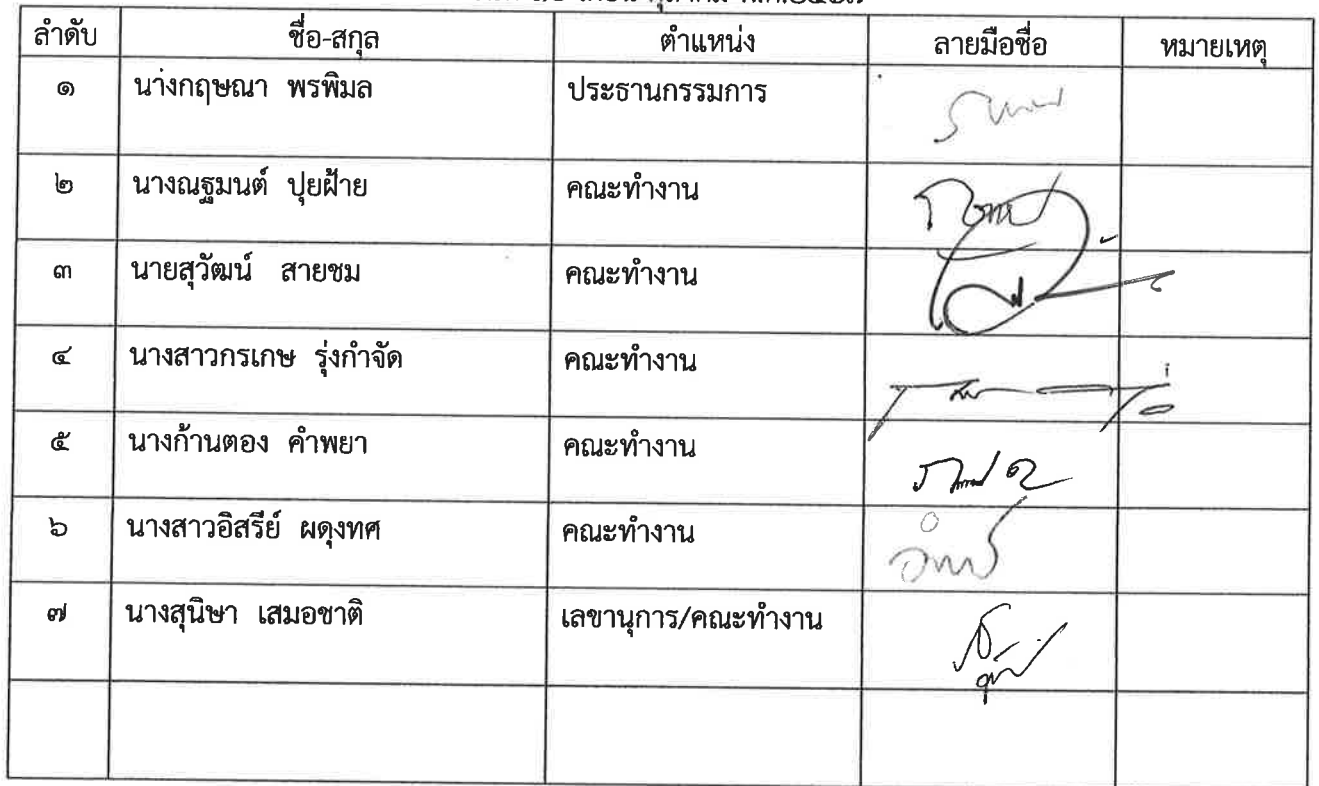 ลำดับ ชื่อ-สกุล ตำแหน่ง ลายมือชื่อ หมายเหตุ
๑ นางกฤษณา พรพิมล ประธานกรรมการ
๒ นางณฐมนต์ ปุยฝ้าย คณะทำงาน
๓ นายสุวัฒน์ สายชม คณะทำงาน
๔ นางสาวกรเกษ รุ่งกำจัด คณะทำงาน
๕ นางก้านตอง คำพยา คณะทำงาน
๖ นางสาวอิสรีย์ ผดุงทศ คณะทำงาน
๗ นางสุนิษา เสมอชาติ เลขานุการ/คณะทำงาน